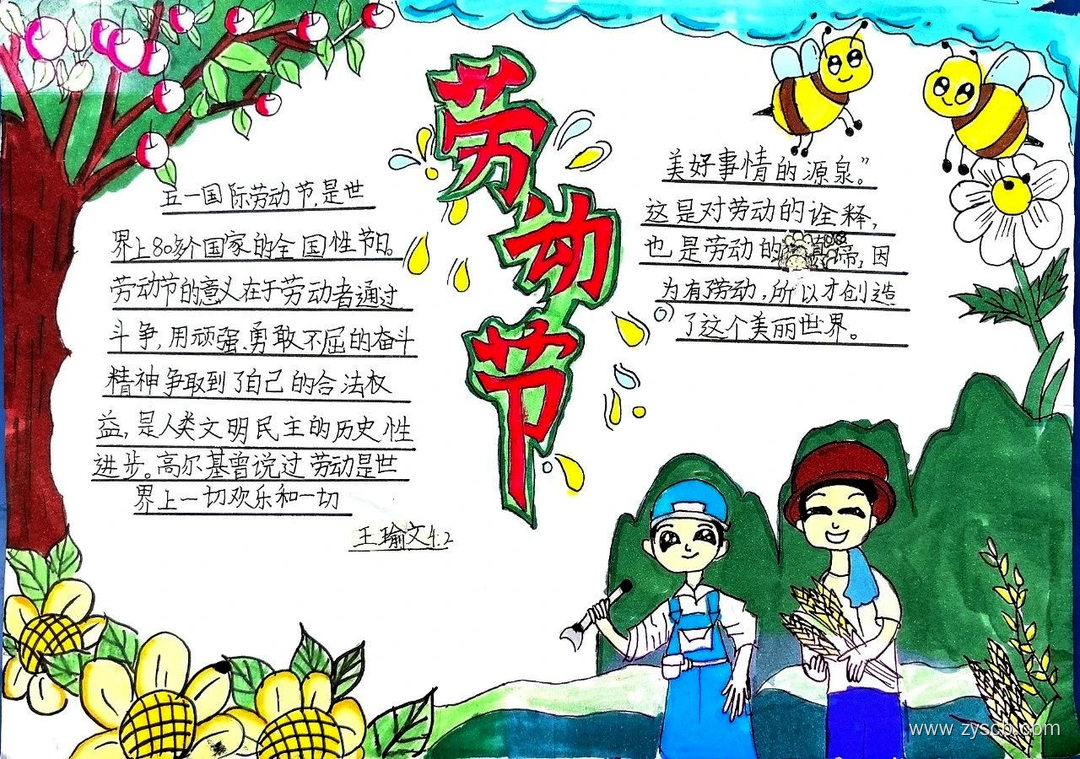 劳动节
五一国际劳动节,是世
界上80多个国家的全国性节日。
劳动节的意义在于劳动者通过
斗争,用顽强、勇敢不屈的奋斗
精神争取到了自己的合法权
益,是人类文明民主的历史性
进步。高尔基曾说过劳动是世
界上一切欢乐和一切
王瑜文4.2
美好事情的源泉。”
这是对劳动的诠释,
也是劳动的谛,因
为有劳动,所以才创造
了这个美丽世界。
www.zyscb.com